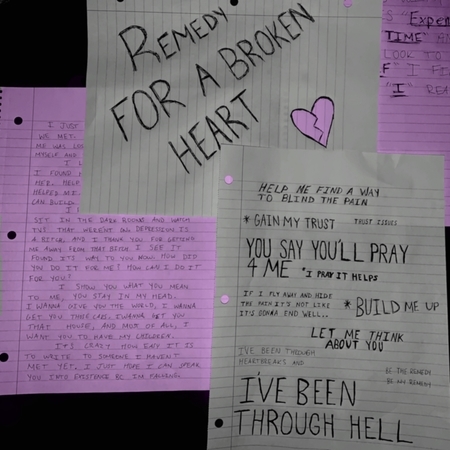 REMEDY
FOR A BROKEN
HEART
"EXPEN
TIME"
LOOK TO
"I" REA
I JUST
WE MET.
ME WAS
MYSELF AND
I FOUND
MET. HELP
HELPED ME
CAN BUILD
SIT IN THE DARK ROOMS AND WATCH
TVS THAT WEREN'T ON. DEPRESSION IS
A BITCH, AND I THANK YOU FOR GETTING
ME AWAY FROM THAT BITCH. I SEE IT
FOUND IT'S WAY TO YOU NOW. HOW DID
YOU DO IT FOR ME? HOW CAN I DO IT
FOR YOU?
I SHOW YOU WHAT YOU MEAN
TO ME, YOU STAY IN MY HEAD.
I WANNA GIVE YOU THE WORLD, I WANNA
GET YOU THOSE CARS, I WANNA GET YOU
THAT HOUSE, AND MOST OF ALL, I
WANT YOU TO HAVE MY CHILDREN.
IT'S CRAZY HOW EASY IT IS
TO WRITE TO SOMEONE I HAVEN'T
MET YET. I JUST HOPE I CAN SPEAK
YOU INTO EXISTENCE BC IM FALLING
HELP ME FIND A WAY
TO BLIND THE PAIN
* GAIN MY TRUST TRUST ISSUES
YOU SAY YOU'LL PRAY
4 ME *I PRAY IT HELPS
IF I FLY AWAY AND HIDE
THE PAIN IT'S NOT LIKE
IT'S GONNA END WELL..
* BUILD ME UP
LET ME THINK
ABOUT YOU
I'VE BEEN THROUGH
HEARTBREAKS AND
BE THE REMEDY
BE MY REMEDY
I'VE BEEN
THROUGH HELL